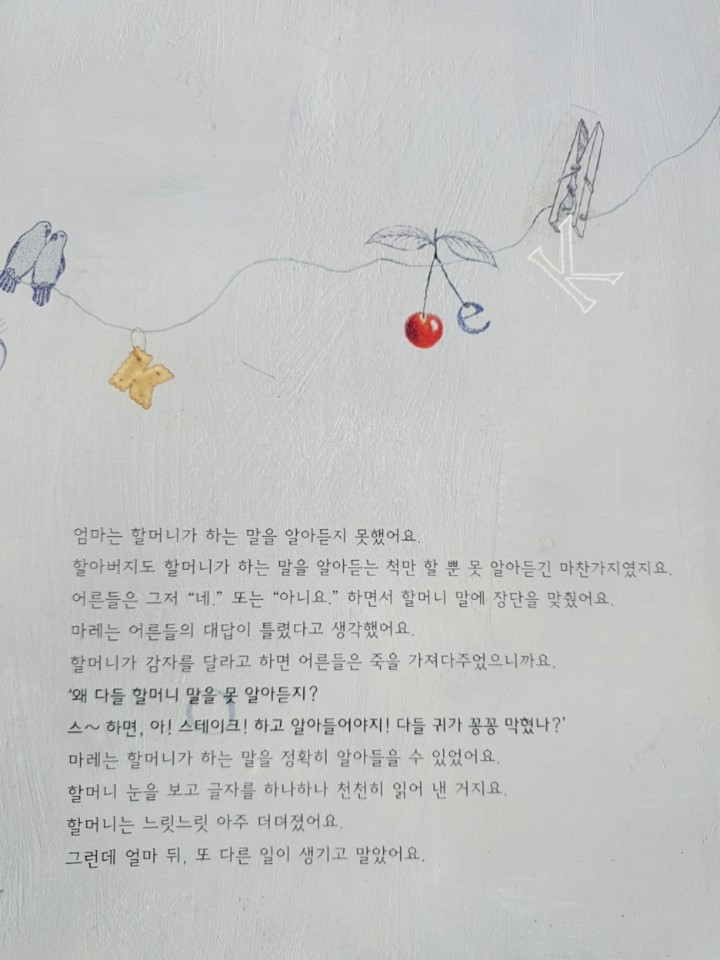 K
e
K
엄마는 할머니가 하는 말을 알아듣지 못했어요.
할아버지도 할머니가 하는 말을 알아듣는 척만 할 뿐 못 알아듣긴 마찬가지였지요.
어른들은 그저 “네.” 또는 “아니요.” 하면서 할머니 말에 장단을 맞췄어요.
마레는 어른들의 대답이 틀렸다고 생각했어요.
할머니가 감자를 달라고 하면 어른들은 죽을 가져다주었으니까요.
‘왜 다들 할머니 말을 못 알아듣지?
스~ 하면, 아! 스테이크! 하고 알아들어야지! 다들 귀가 꽁꽁 막혔나?’
마레는 할머니가 하는 말을 정확히 알아들을 수 있었어요.
할머니 눈을 보고 글자를 하나하나 천천히 읽어 낸 거지요.
할머니는 느릿느릿 아주 더뎌졌어요.
그런데 얼마 뒤, 또 다른 일이 생기고 말았어요.